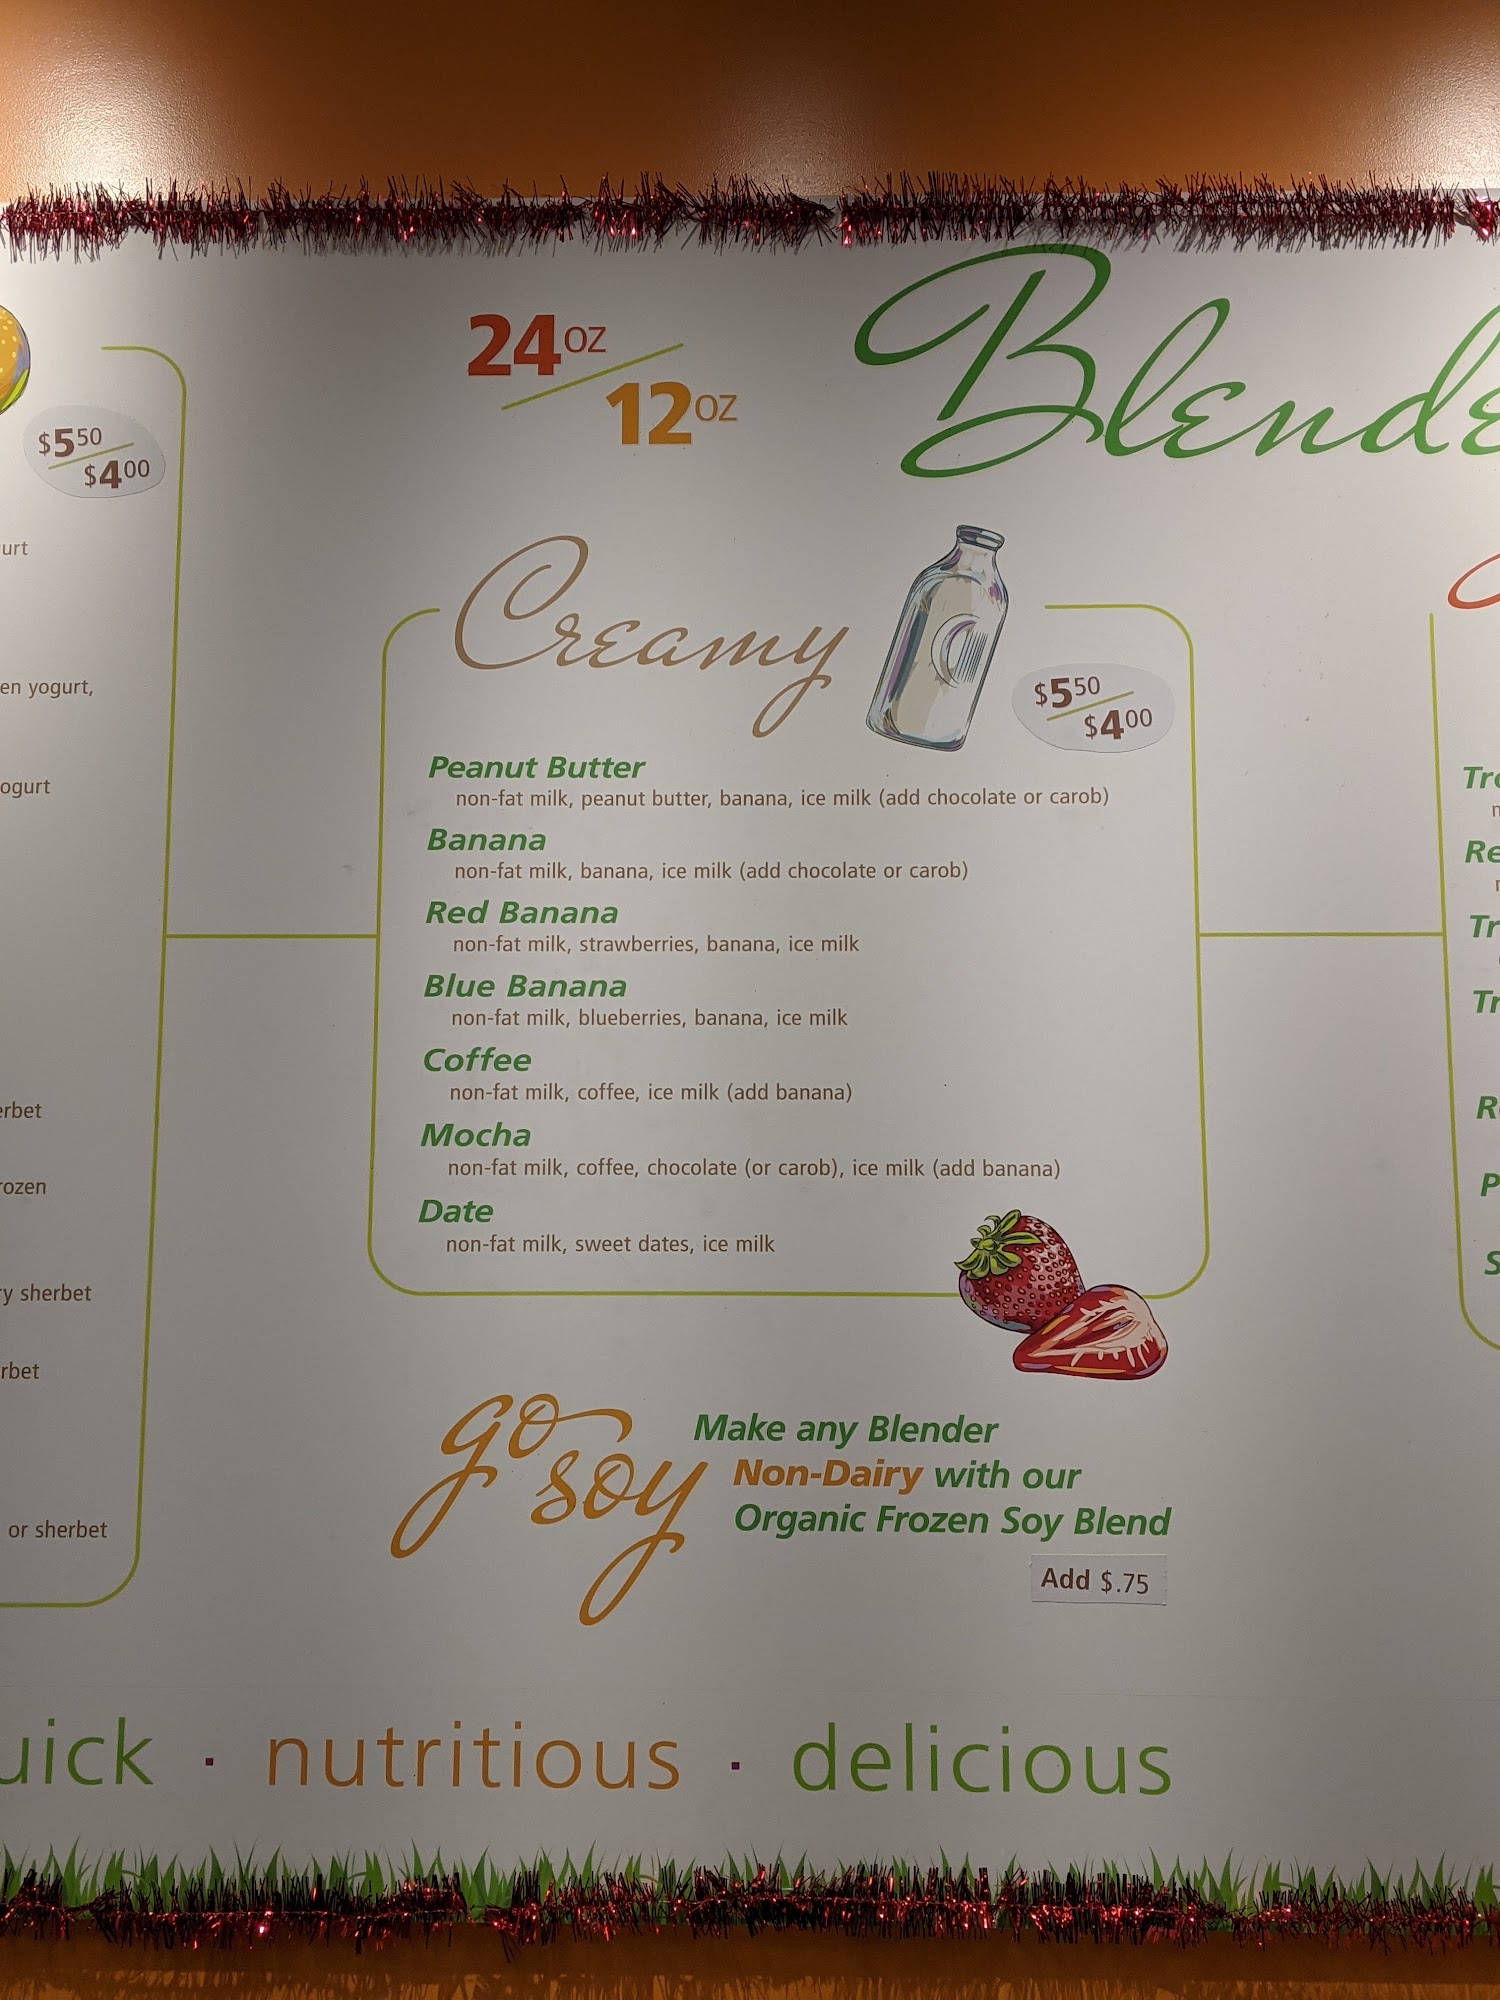 24 OZ
12 OZ
$5 50
$4 00
yogurt,
or sherbet
sherbet
Creamy
$5 50
$4 00
Peanut Butter
non-fat milk, peanut butter, banana, ice milk (add chocolate or carob)
Banana
non-fat milk, banana, ice milk (add chocolate or carob)
Red Banana
non-fat milk, strawberries, banana, ice milk
Blue Banana
non-fat milk, blueberries, banana, ice milk
Coffee
non-fat milk, coffee, ice milk (add banana)
Mocha
non-fat milk, coffee, chocolate (or carob), ice milk (add banana)
Date
non-fat milk, sweet dates, ice milk
go soy
Make any Blender
Non-Dairy with our
Organic Frozen Soy Blend
Add $.75
nutritious · delicious